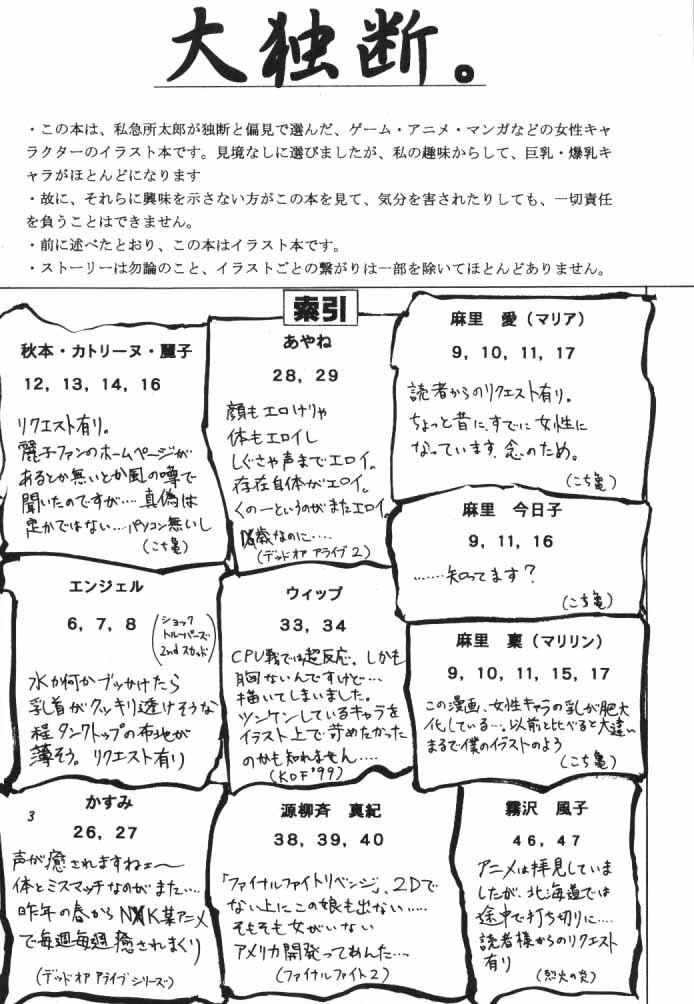 大独断。
・この本は、私急所太郎が独断と偏見で選んだ、ゲーム・アニメ・マンガなどの女性キャ
ラクターのイラスト本です。見境なしに選びましたが、私の趣味からして、巨乳・爆乳キ
ャラがほとんどになります
・故に、それらに興味を示さない方がこの本を見て、気分を害されたりしても、一切責任
を負うことはできません。
・前に述べたとおり、この本はイラスト本です。
・ストーリーは勿論のこと、イラストごとの繋がりは一部を除いてほとんどありません。
索引
秋本・カトリーヌ・麗子
12, 13, 14, 16
リクエスト有り。
麗子ファンのホームページが
あるとか無いとか風の噂で
聞いたのですが‥‥真偽は
定かではない‥‥パソコン無いし
(こち亀)
あやね
28, 29
(デッド オア アライブ2)
麻里 愛(マリア)
9, 10, 11, 17
読者からのリクエスト有り。
ちょっと昔に、すでに女性に
なっています、念のため。
(こち亀)
麻里 今日子
9, 11, 16
‥‥‥知ってます?
(こち亀)
エンジェル
6, 7, 8
(ショック
トルーパーズ
2nd スカッド)
水か何かブッかけたら
乳首がクッキリ透けそうな
程タンクトップの布地が
薄そう。リクエスト有り
ウィップ
33, 34
CPU戦では超反応、しかも
胸ないんですけど‥‥
描いてしまいました。
ツンケンしているキャラを
イラスト上で苛めたかった
のかも知れません‥‥
(KOF'99)
麻里 稟(マリリン)
9, 10, 11, 15, 17
この漫画、女性キャラの乳が肥大
化している‥‥。以前と比べると大違い
まるで僕のイラストのよう
(こち亀)
3
かすみ
26, 27
声が癒されますねェ〜
体とミスマッチなのがまた‥‥
昨年の春からNXK某アニメ
で毎週毎週癒されまくり
(デッド オア アライブ シリーズ)
源柳斉 真紀
38, 39, 40
「ファイナルファイトリベンジ」、2Dで
ない上にこの娘も出ない‥‥‥
そもそも女がいない
アメリカ開発ってあんた‥‥
(ファイナルファイト2)
霧沢 風子
46, 47
アニメは拝見していま
したが、北海道では
途中で打ち切りに‥‥
読者様からのリクエスト
有り
(烈火の炎)